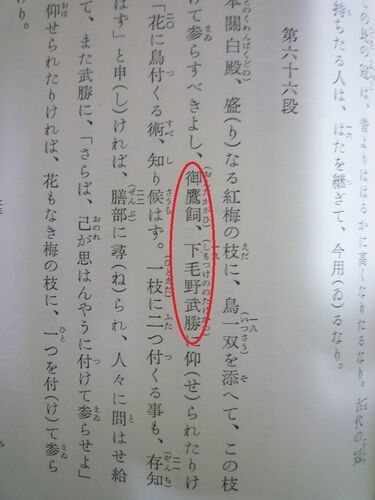 の比の冠は、昔よりははるかに高くなりたるなり。古代の冠
持ちたる人は、はたを継ぎて、今用(ゐ)るなり。
第六十六段
本關白殿、盛(り)なる紅梅の枝に、鳥一双を添へて、この枝
けて参らすべきよし、御鷹飼、下毛野武勝に仰(せ)られたりけ
「花に鳥付くる術、知り候はず。一枝に二つ付くる事も、存知
はず」と申(し)ければ、膳部に尋(ね)られ、人々に問はせ給
て、また武勝に、「さらば、己が思はんやうに付けて参らせよ」
仰せられたりければ、花もなき梅の枝に、一つを付(け)て参ら
り。